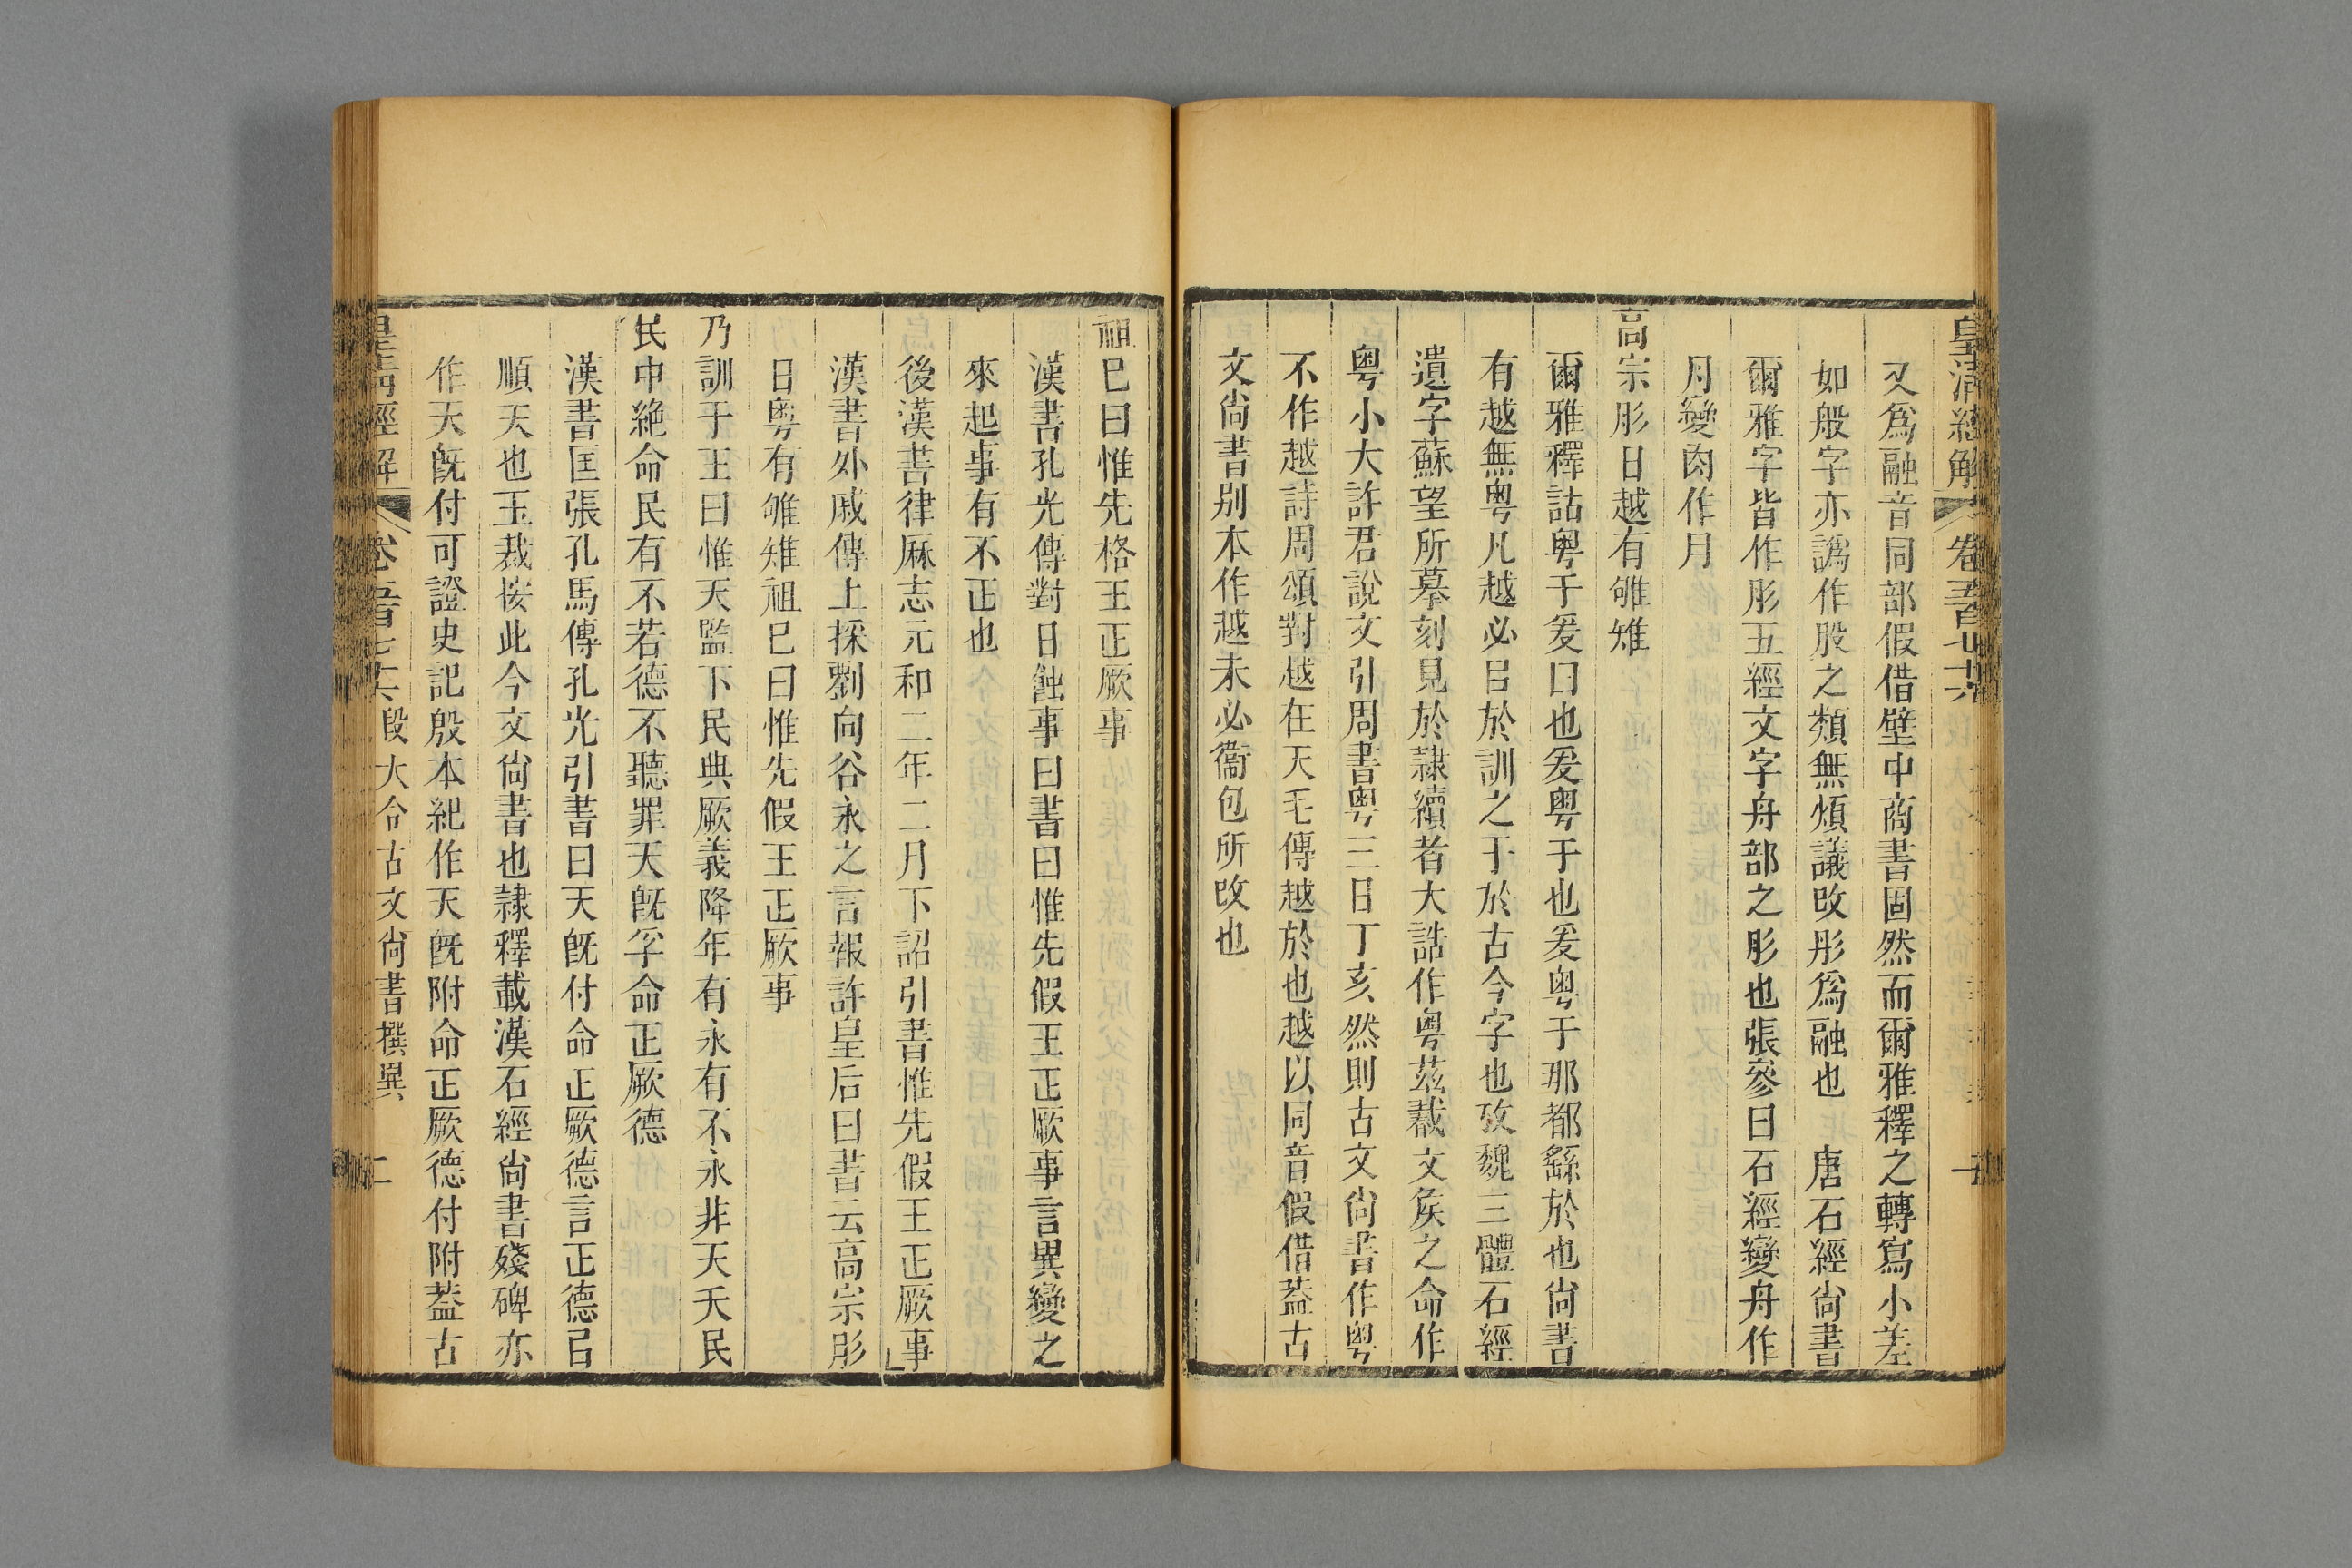 皇清經解 卷五百七十六 一
又爲融音同部假借壁中商書固然而爾雅釋之轉寫小差
如般字亦譌作股之類無煩議改肜爲融也 唐石經尙書
爾雅字皆作肜五經文字舟部之肜也張參曰石經變舟作
月變肉作月
高宗肜日越有雊雉
爾雅釋詁粤于爰曰也爰粤于也爰粤于那都繇於也尙書
有越無粤凡越必㠯於訓之于於古今字也攷魏三體石經
遺字蘇望所摹刻見於隸續者大誥作粤茲蠚文矦之命作
粤小大許君說文引周書粤三日丁亥然則古文尙書作粤
不作越詩周頌對越在天毛傳越於也越以同音假借葢古
文尙書别本作越未必衞包所改也
祖巳曰惟先格王正厥事
漢書孔光傳對日蝕事曰書曰惟先假王正厥事言異變之
來起事有不正也
後漢書律厤志元和二年二月下詔引書惟先假王正厥事
漢書外戚傳上採劉向谷永之言報許皇后曰書云高宗肜
日粤有雊雉祖巳曰惟先假王正厥事
乃訓于王曰惟天監下民典厥義降年有永有不永非天夭民
民中絶命民有不若德不聽罪天旣孚命正厥德
漢書匡張孔馬傳孔光引書曰天旣付命正厥德言正德㠯
順天也玉裁按此今文尙書也隷釋載漢石經尙書殘碑亦
作天旣付可證史記殷本紀作天旣附命正厥德付附葢古
皇淸經解 卷五百七十六 段大令古文尙書撰異 二